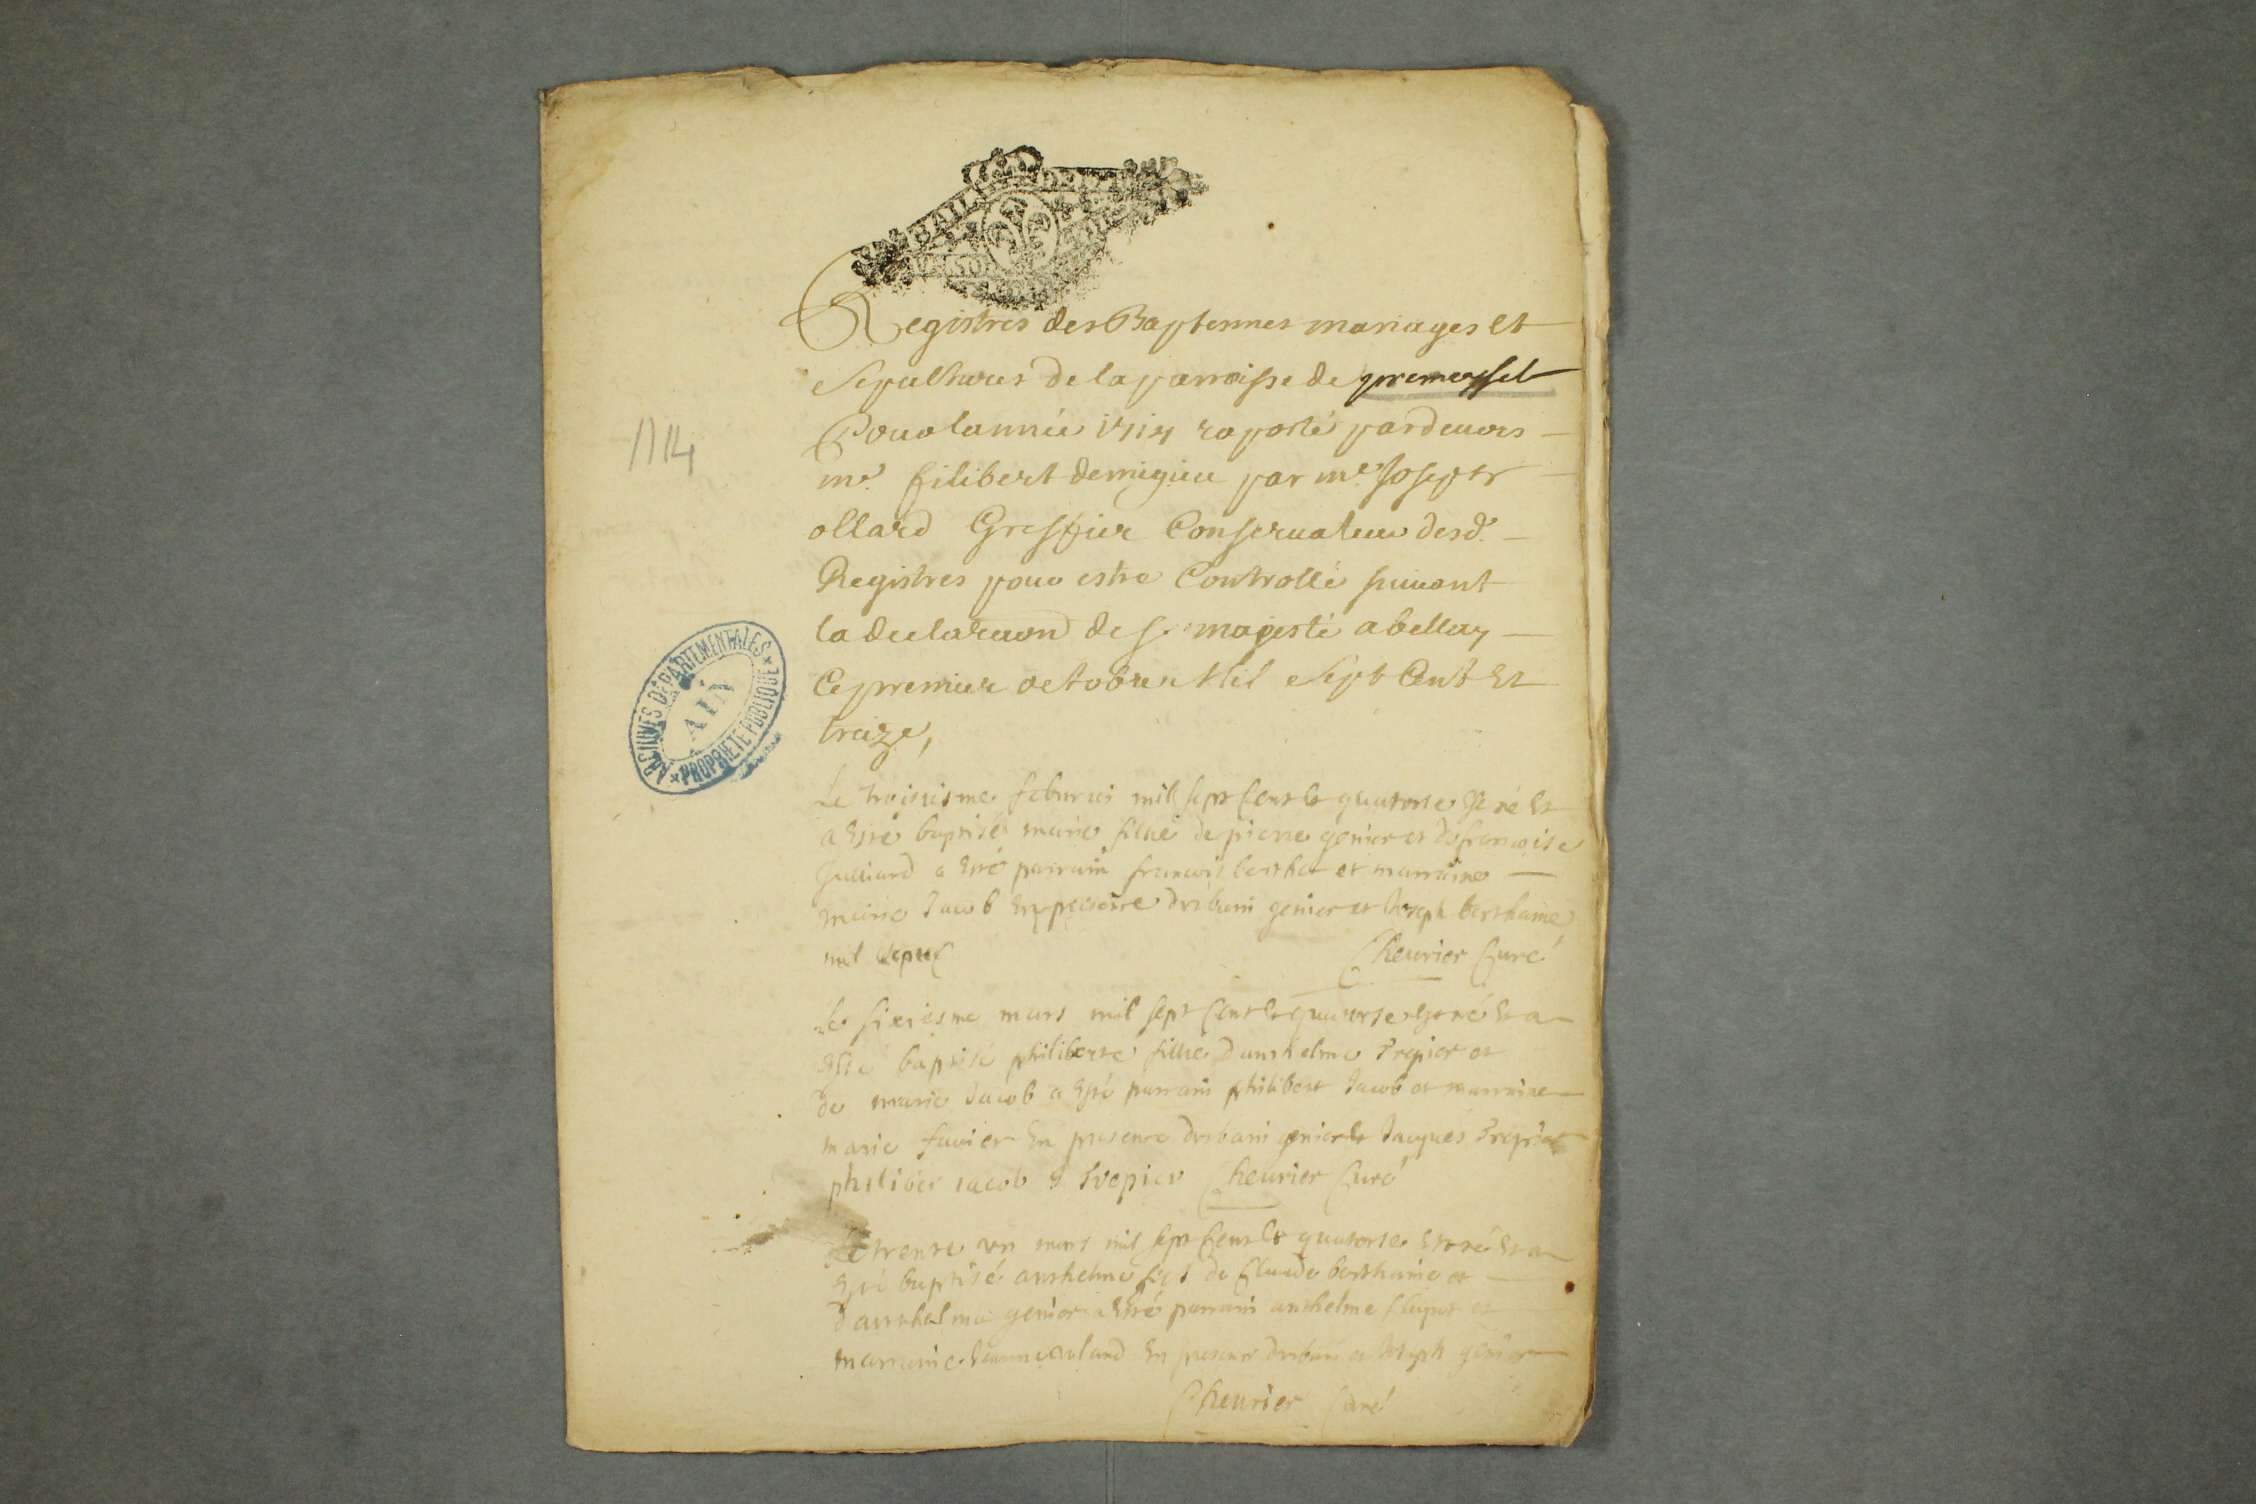 Registres des Baptesmes mariages et
Sepultures de la parroisse de premeyssel
Pour lannée 1714 raporté pardeuers
me. filibert demigieu par me. Joseph
ollard Greffier Conseruateur desd.
Registres pour estre Controllé suiuant
la declaration de sa majesté a bellay
Ce premier octobre Mil Sept Cent Et
traize,
1714
ARCHIVES DÉPARTEMENTALES
AIN
PROPRIÉTÉ PUBLIQUE
Le troisiesme feburier mil sept Cent et quatorse Est né Et
a Esté baptisé marie fillie de pierre genier et de françoise
Julliard a Esté parrain francois berthet et marraine
marie Jacob En presence durbain genier et Joseph berthaine
Cheurier Curé
Le sixiesme mars mil sept Cent et quatorse Est né Et a
Esté baptisé philiberte fillie danthelme Trepier et
de marie Jacob a Esté parrain philibert Jacob et marraine
marie fauier En presence durbain genier et Jacques Trepier
philiber iacob I Trepier Cheurier Curé
Le trente un mars mil sept Cent et quatorse Est né Et a
Esté baptisé anthelme fils de Claude berthaine et
danthelma genier a Esté parrain anthelme et
marraine En presence durbain et Joseph genier
Cheurier Curé